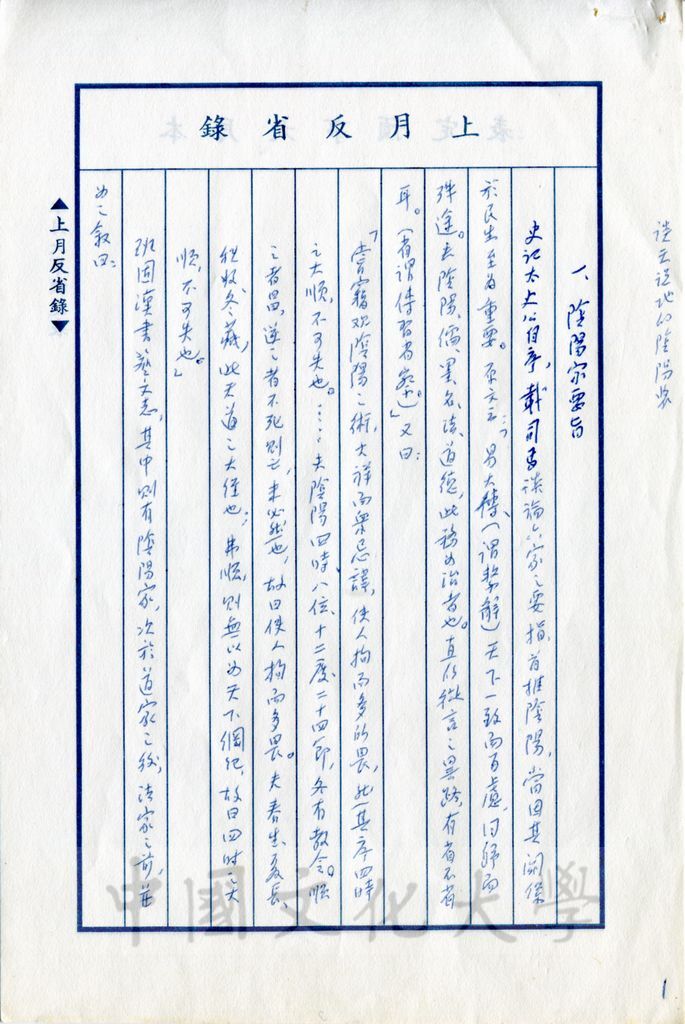 談天說地的陰陽家
上月反省錄
一、陰陽家要旨
史記太史公自序,載司馬談論六家之要指,首推陰陽,當因其關係
於民生至為重要。原文云:「易大傳(謂繫辭)天下一致而百慮,同歸而
殊途。夫陰陽、儒、墨、名、法、道德,此務為治者也。直所從言之異路,有省不省
耳。(省謂傳習省察)」又曰:
「嘗竊观陰陽之術,大祥而衆忌諱,使人拘而多所畏,然其序四時
之大順,不可失也。……夫陰陽四時、八位、十二度、二十四節,各有教令。順
之者昌,逆之者不死則亡,未必然也,故曰使人拘而多畏。夫春生、夏長、
秋收、冬藏,此天道之大經也;弗順,則無以為天下綱紀,故曰四时之大
順,不可失也。」
班固漢書藝文志,其中則有陰陽家,次於道家之後,法家之前,並
為之敘曰:
▲上月反省錄▼
中國文化大學
1